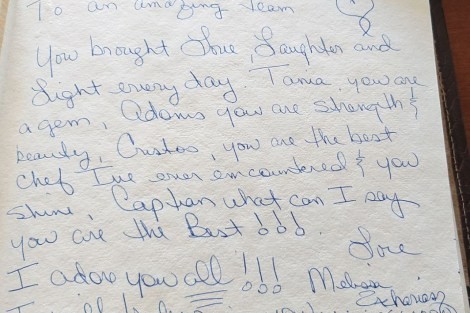 To an amazing team
You brought Love, Laughter and
Light every day. Tania, you are
a gem, Adonis you are strength &
beauty, Cristos, you are the best
Chef I've ever encountered & you
shine, Captian what can I say
you are the Best !!!
Love
I adore you all !!! Melissa